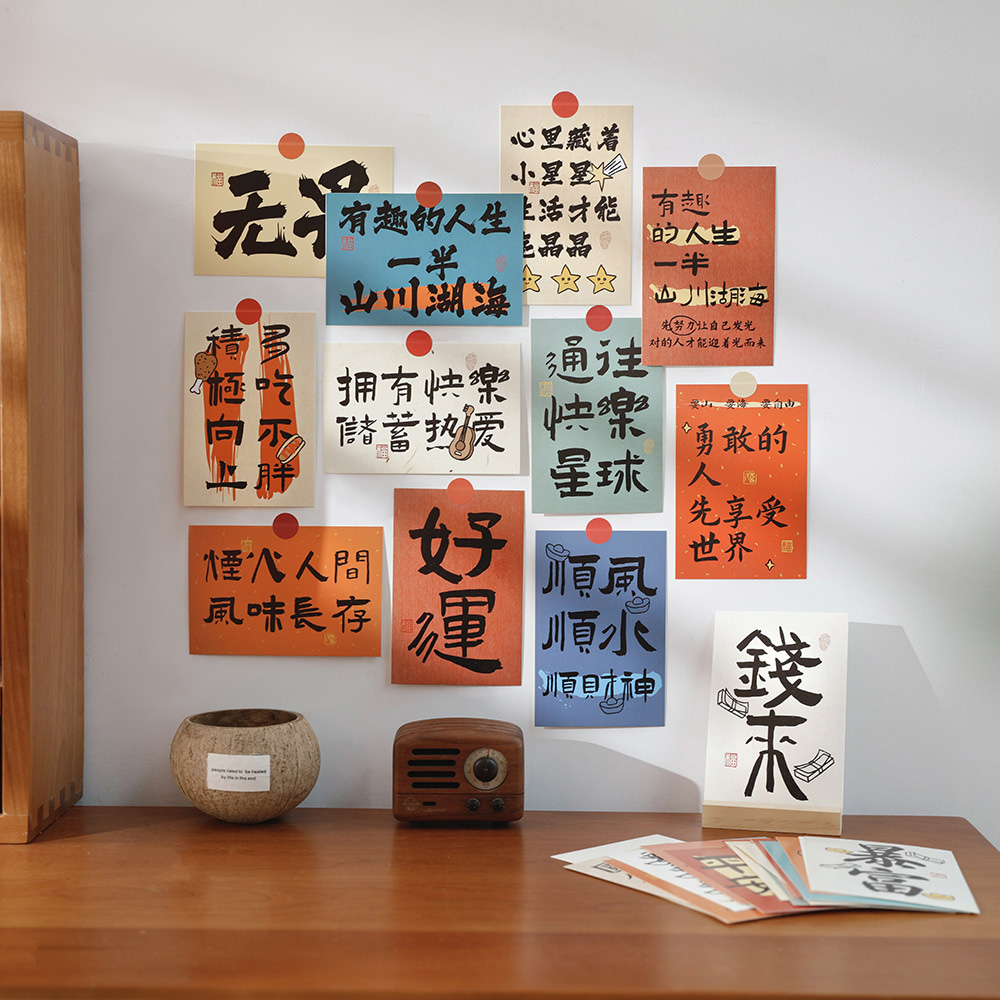 无
有趣的人生
一半
山川湖海
心里藏着
小星星
生活才能
亮晶晶
有趣
的人生
一半
山川湖海
先努力让自己发光
对的人才能迎着光而来
積極向上
多吃不胖
拥有快樂
儲蓄热爱
通往
快樂
星球
要山 要海 要自由
勇敢的
人
先享受
世界
煙火人間
風味長存
好運
順風
順水
順財神
錢來
people need to be healed
by life in the end
暴富